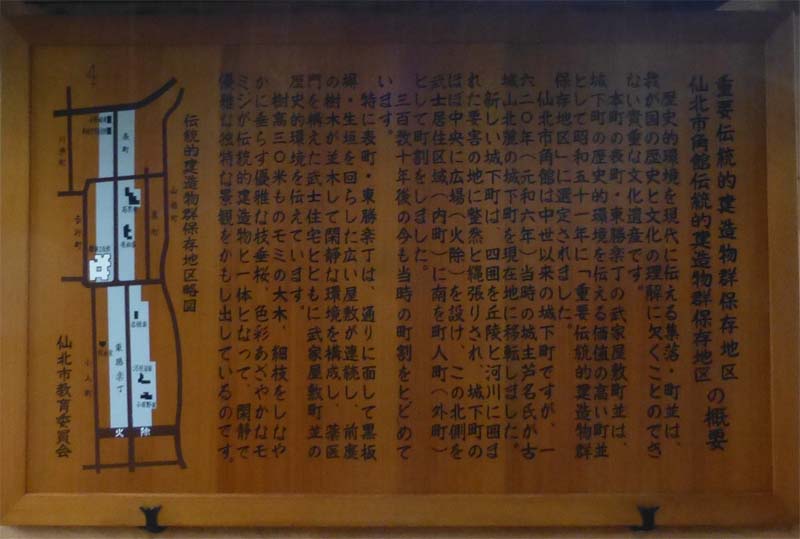 重要伝統的建造物群保存地区
仙北市角館伝統的建造物群保存地区
の概要
歴史的環境を現代に伝える集落・町並は、
我が国の歴史と文化の理解に欠くことのでき
ない貴重な文化遺産です。
本町の表町・東勝楽丁の武家屋敷町並は、
城下町の歴史的環境を伝える価値の高い町並
として昭和五十一年に「重要伝統的建造物群
保存地区」に選定されました。
仙北市角館は中世以来の城下町ですが、一
六二〇年(元和六年)当時の城主芦名氏が古
城山北麓の城下町を現在地に移転しました。
新しい城下町は、四囲を丘陵と河川に囲ま
れた要害の地に整然と縄張りされ、城下町の
ほぼ中央に広場(火除)を設け、この北側を
武士居住区域(内町)に南を町人町(外町)
として町割をしました。
三百数十年後の今も当時の町割をとどめて
います。
特に表町・東勝楽丁は、通りに面して黒板
塀・生垣を回らした広い屋敷が連続し、前庭
の樹木が並木して閑静な環境を構成し、薬医
門を構えた武士住宅とともに武家屋敷町並の
歴史的環境を伝えています。
樹高三〇米ものモミの大木、細枝をしなや
かに垂らす優雅な枝垂桜、色彩あざやかなモ
ミジが伝統的建造物と一体となって、閑静で
優雅な独特な景観をかもし出しているのです。
伝統的建造物群保存地区略図
表町
東勝楽丁
火除
仙北市教育委員会